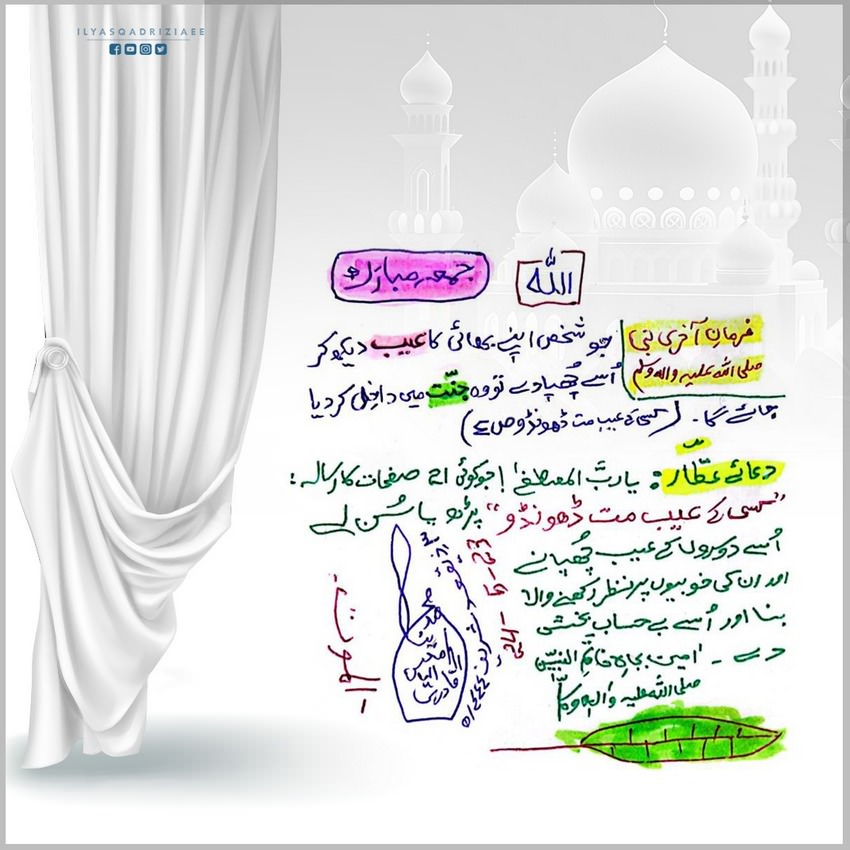 ILYASQADRIZIAEE
اللہ
جمعہ مبارک
فرمانِ آخری نبی
صلی اللہ علیہ واٰلہ وسلم
جو شخص اپنے بھائی کا عیب دیکھ کر
اُسے چُھپا دے تو وہ جنّت میں داخِل کر دیا
جائے گا۔ (کسی کے عیب مت ڈھونڈو ص ٤)
دعائے عطّار: یاربَّ المصطفےٰ! جو کوئی 21 صفحات کا رسالہ:
"کسی کے عیب مت ڈھونڈو" پڑھ یا سُن لے
اُسے دوسروں کے عیب چُھپانے
اور ان کی خوبیوں پر نظر رکھنے والا
بنا اور اُسے بے حساب بخشش
دے۔ اٰمین بجاہِ خاتمِ النبیّٖن
صلی اللہ علیہ واٰلہٖ وسلَّم
محمد
الیاس
القادری
الموت